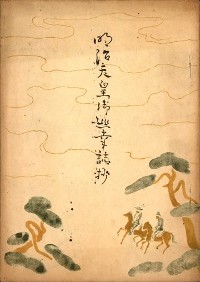 明治天皇御巡幸誌抄